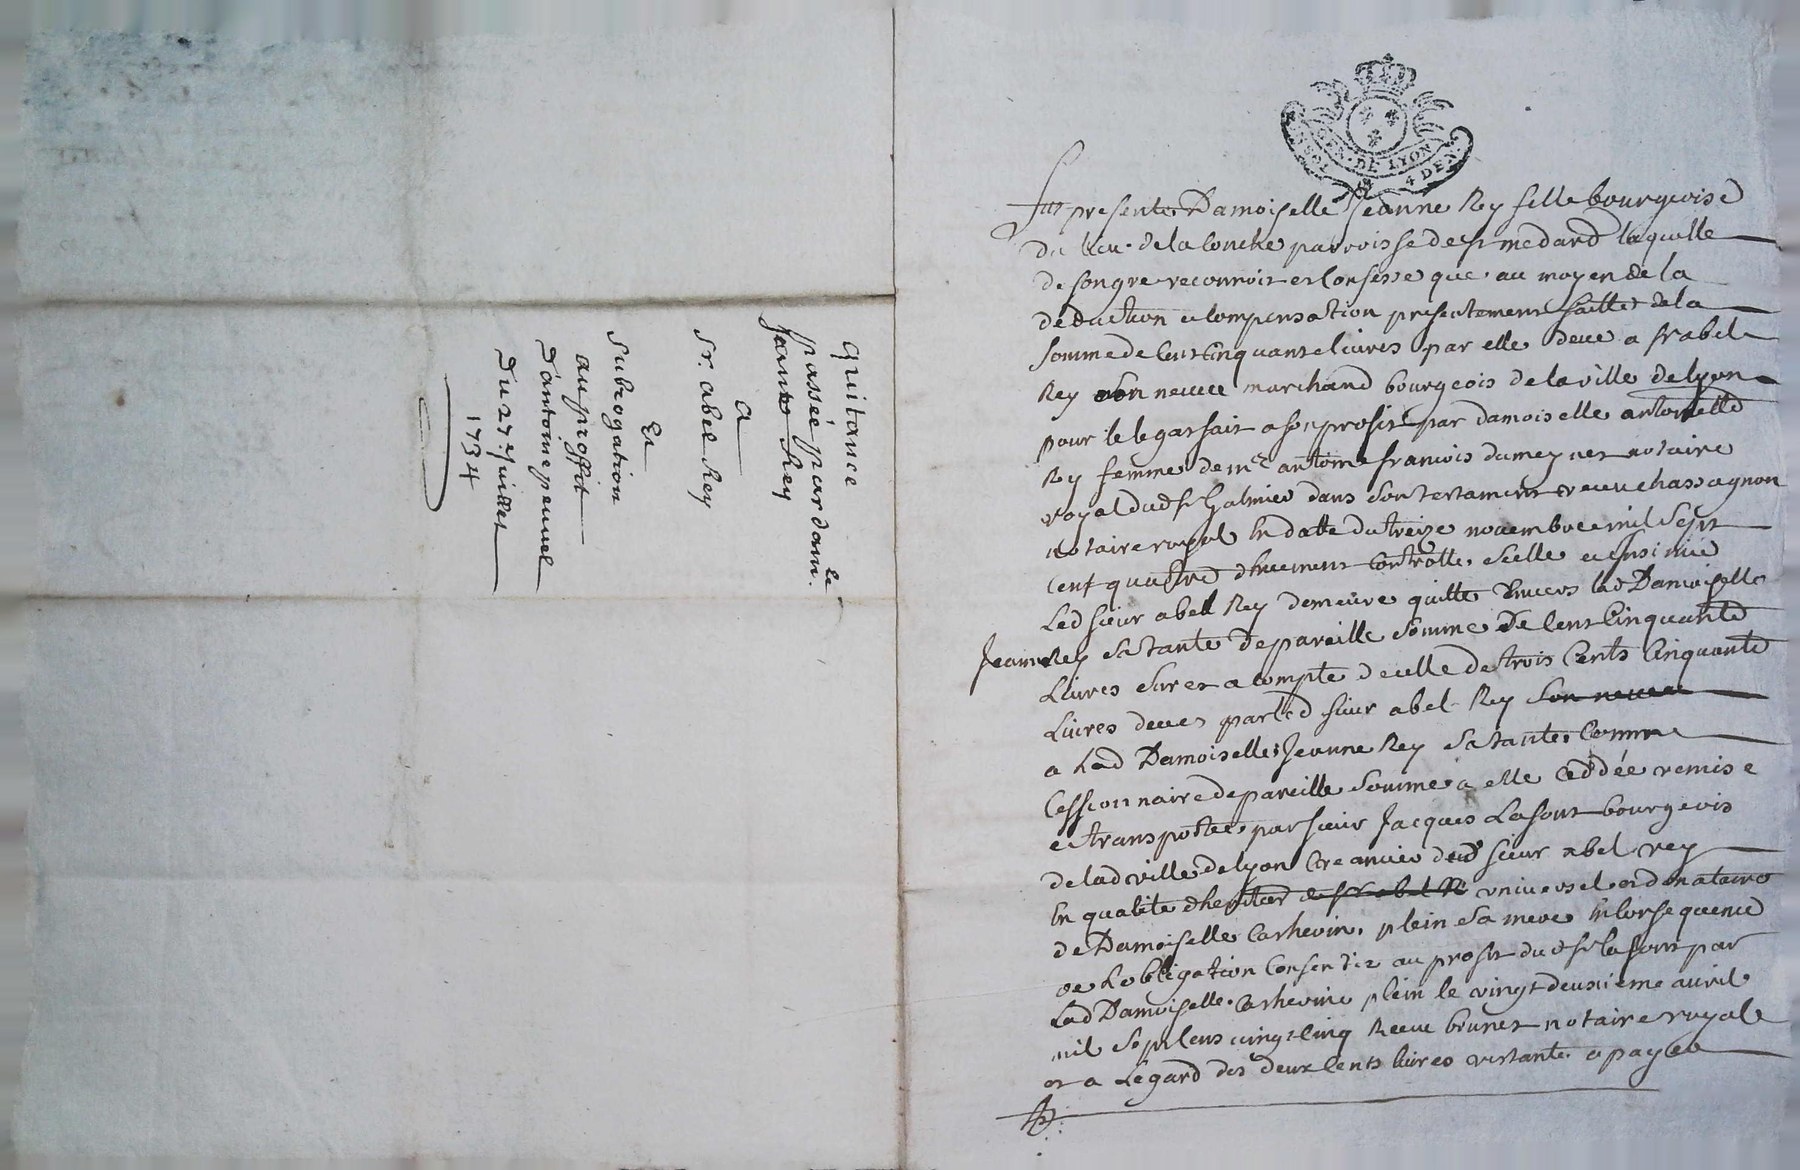 Quitance
passée par dam.le
Jeanne Rey
a
Sr. abel Rey
Et
Subrogation
au proffit
d'antoine peuvel
Du 27e Juillet
1734
GEN. DE LYON
4 DEN.
Fut presente Damoiselle Jeanne Rey fille bourgeoise
du lieu de la Conche parroisse de st medard laquelle
de son gre reconnoit et Confesse que au moyen de la
deduction et Compensation presentement faitte de la
somme de Cent Cinquante livres par elle deue a sr abel
Rey son neveu marchand bourgeois de la ville de lyon
pour le legat fait a son profit par damoiselle antoinette
Rey femme de me antoine francois dumeynet notaire
royal dud st Galmier dans son testament receu chassagnon
notaire royal En datte du treize novembre mil sept
cent quattre dheuement Controllé, scellé et insinué
Led sieur abel Rey demeure quitte Envers lad Damoiselle
Jeanne Rey sa tante de pareille somme De Cent Cinquante
Livres sur et a compte de celle de trois Cents Cinquante
Livres deues par led sieur abel Rey son neveu
a Lad Damoiselle Jeanne Rey sa tante, Comme
Cessionnaire de pareille somme a elle Ceddée remise
et transportée par sieur Jacques Lafont bourgeois
de lad ville de lyon Creancier dud sieur abel rey
En qualité d'heritier universel et donataire
de Damoiselle Catherine plein sa mere En Consequence
de Lobligation Consentie au profit dud sr lafont par
Lad Damoiselle Catherine plein le vingt deuxieme avril
mil sept Cens vingt Cinq Receue brunet notaire royale
et a Legard des deux Cents livres restante a payer